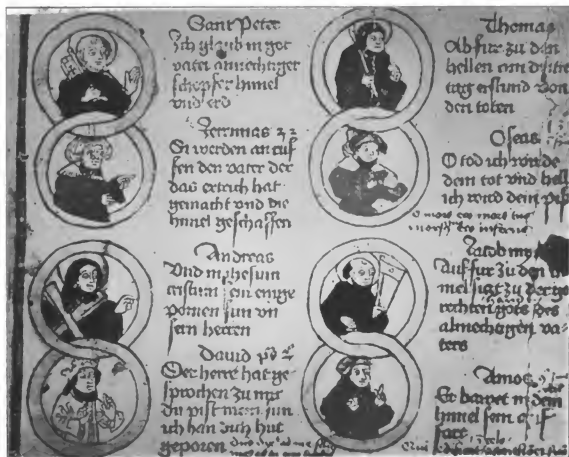 Sant Peter
Ich glaub in got
vater almechtiger
schepfer himel
vnd erd
Jeremias
Si werden an ruf
fen den vater der
das ertrich hat
gemacht vnd die
himel geschaffen
Andreas
Vnd in Jhesum
cristum sein einige
pornen sun vn
sern herren
David
Der herre hat ge
sprochen zu mir
Du pist mein sun
ich han dich hut
geporen
Thomas
Ab fur zu den
hellen am dritte
tag erstund von
den toten
Oseas
O tod ich wirde
dein tot vnd hell
ich wird dein
o mors ero mors tua
morsus inferne
Jacob
Auf fur zu den
mel sitzt zu der
rechten gots des
almechtigen va
ters
Amos
Er bawet in dem
himel sein